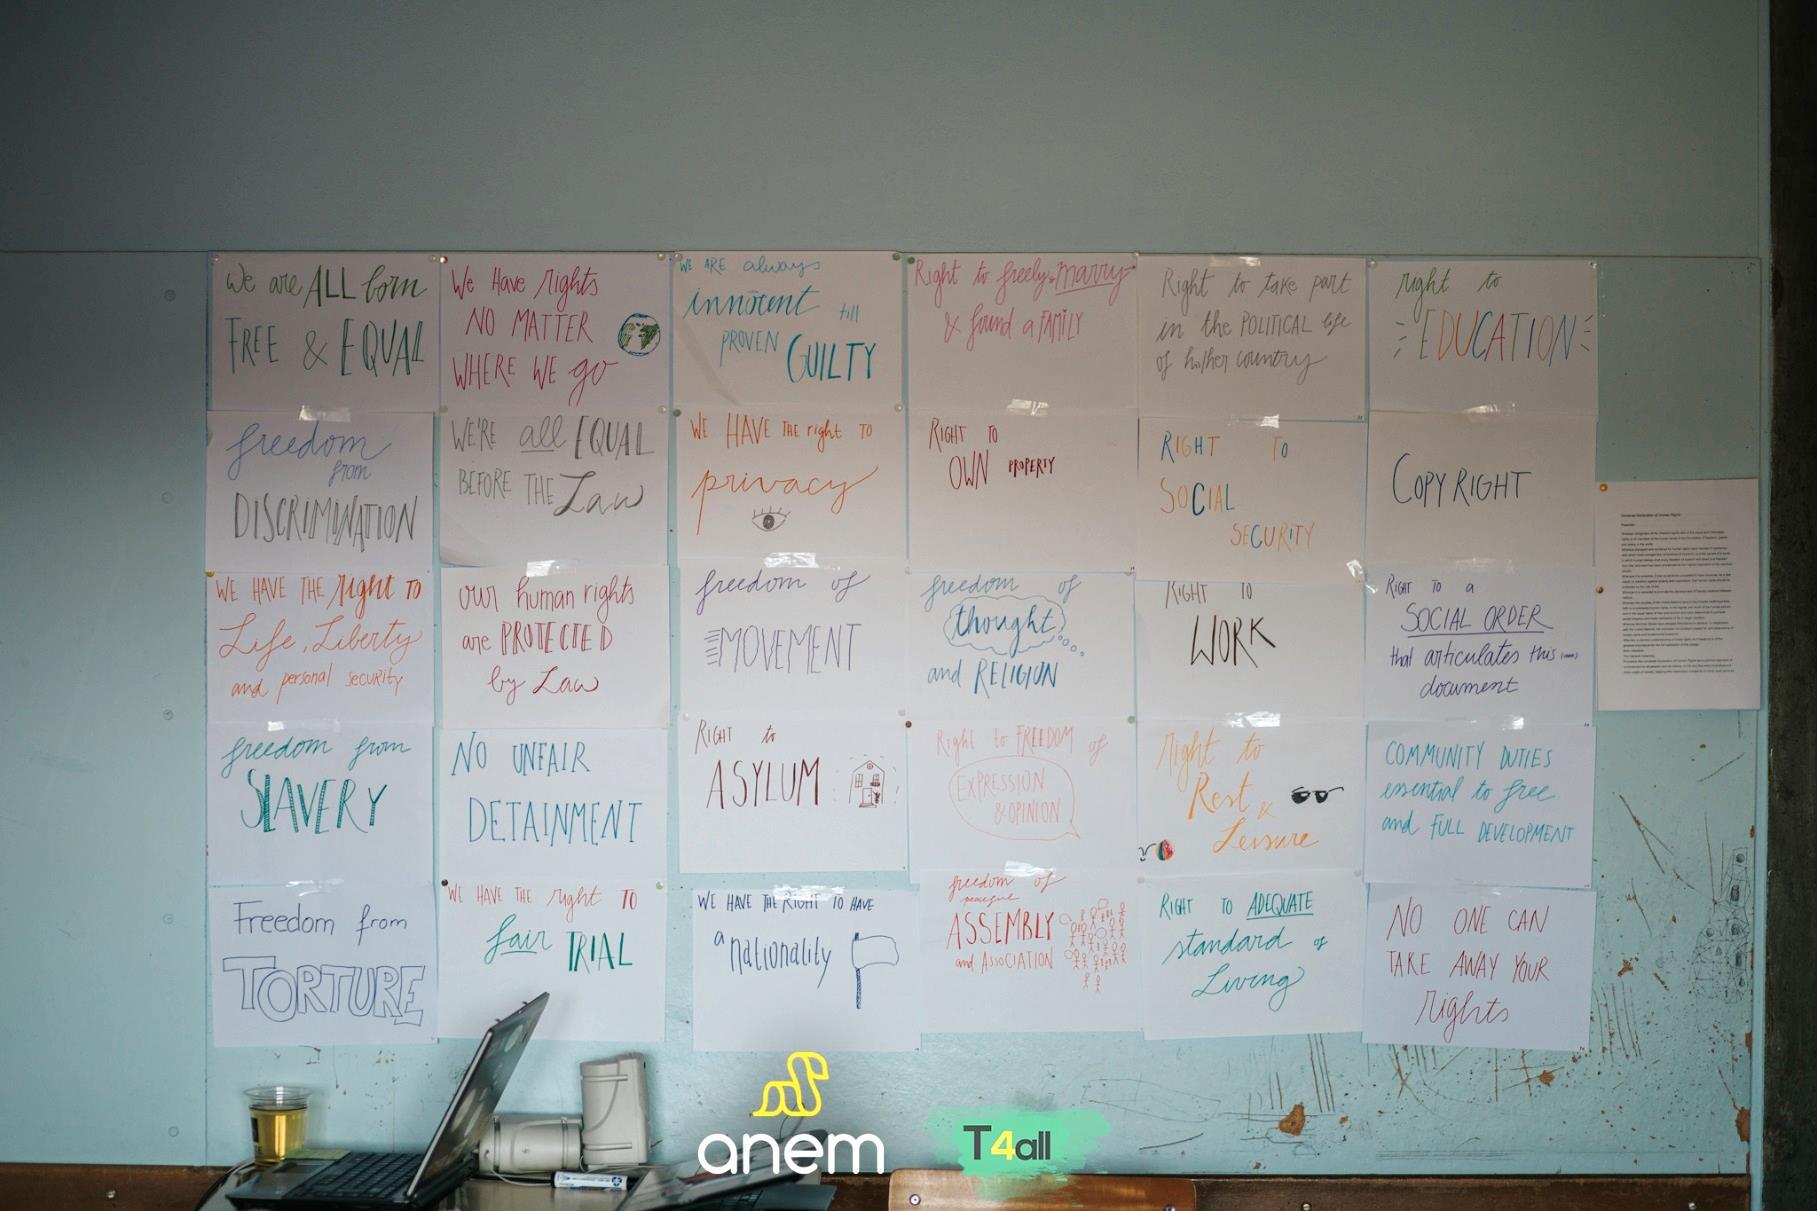 We are ALL born
FREE & EQUAL
freedom
from
DISCRIMINATION
WE HAVE THE Right TO
Life, Liberty
and personal security
freedom from
SLAVERY
Freedom from
TORTURE
We Have rights
NO MATTER
WHERE WE go
WE'RE all EQUAL
BEFORE THE Law
our human rights
are PROTECTED
by Law
NO UNFAIR
DETAINMENT
WE HAVE THE right TO
fair TRIAL
WE ARE always
innocent till
PROVEN GUILTY
WE HAVE THE right TO
privacy
freedom of
MOVEMENT
Right to
ASYLUM
WE HAVE THE RIGHT TO HAVE
a nationality
Right to freely marry
& found a FAMILY
RIGHT TO
OWN PROPERTY
freedom of
thought
and RELIGION
Right to FREEDOM of
EXPRESSION
& OPINION
freedom of
ASSEMBLY
and ASSOCIATION
Right to take part
in the POLITICAL life
of his/her country
RIGHT TO
SOCIAL
SECURITY
RIGHT TO
WORK
Right to
Rest &
Leisure
RIGHT TO ADEQUATE
standard of
Living
right to
EDUCATION
COPYRIGHT
RIGHT TO a
SOCIAL ORDER
that articulates this
document
COMMUNITY DUTIES
essential to free
and FULL DEVELOPMENT
NO ONE CAN
TAKE AWAY YOUR
rights
Universal Declaration of Human Rights
Preamble
anem
T4all